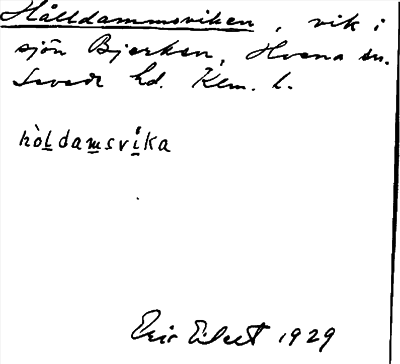 Hålldammsviken, vik i
sjön Bjerken, Hvena sn.
Sevede hd. Klm. l.
hòldamsvika
Eric Elert 1929